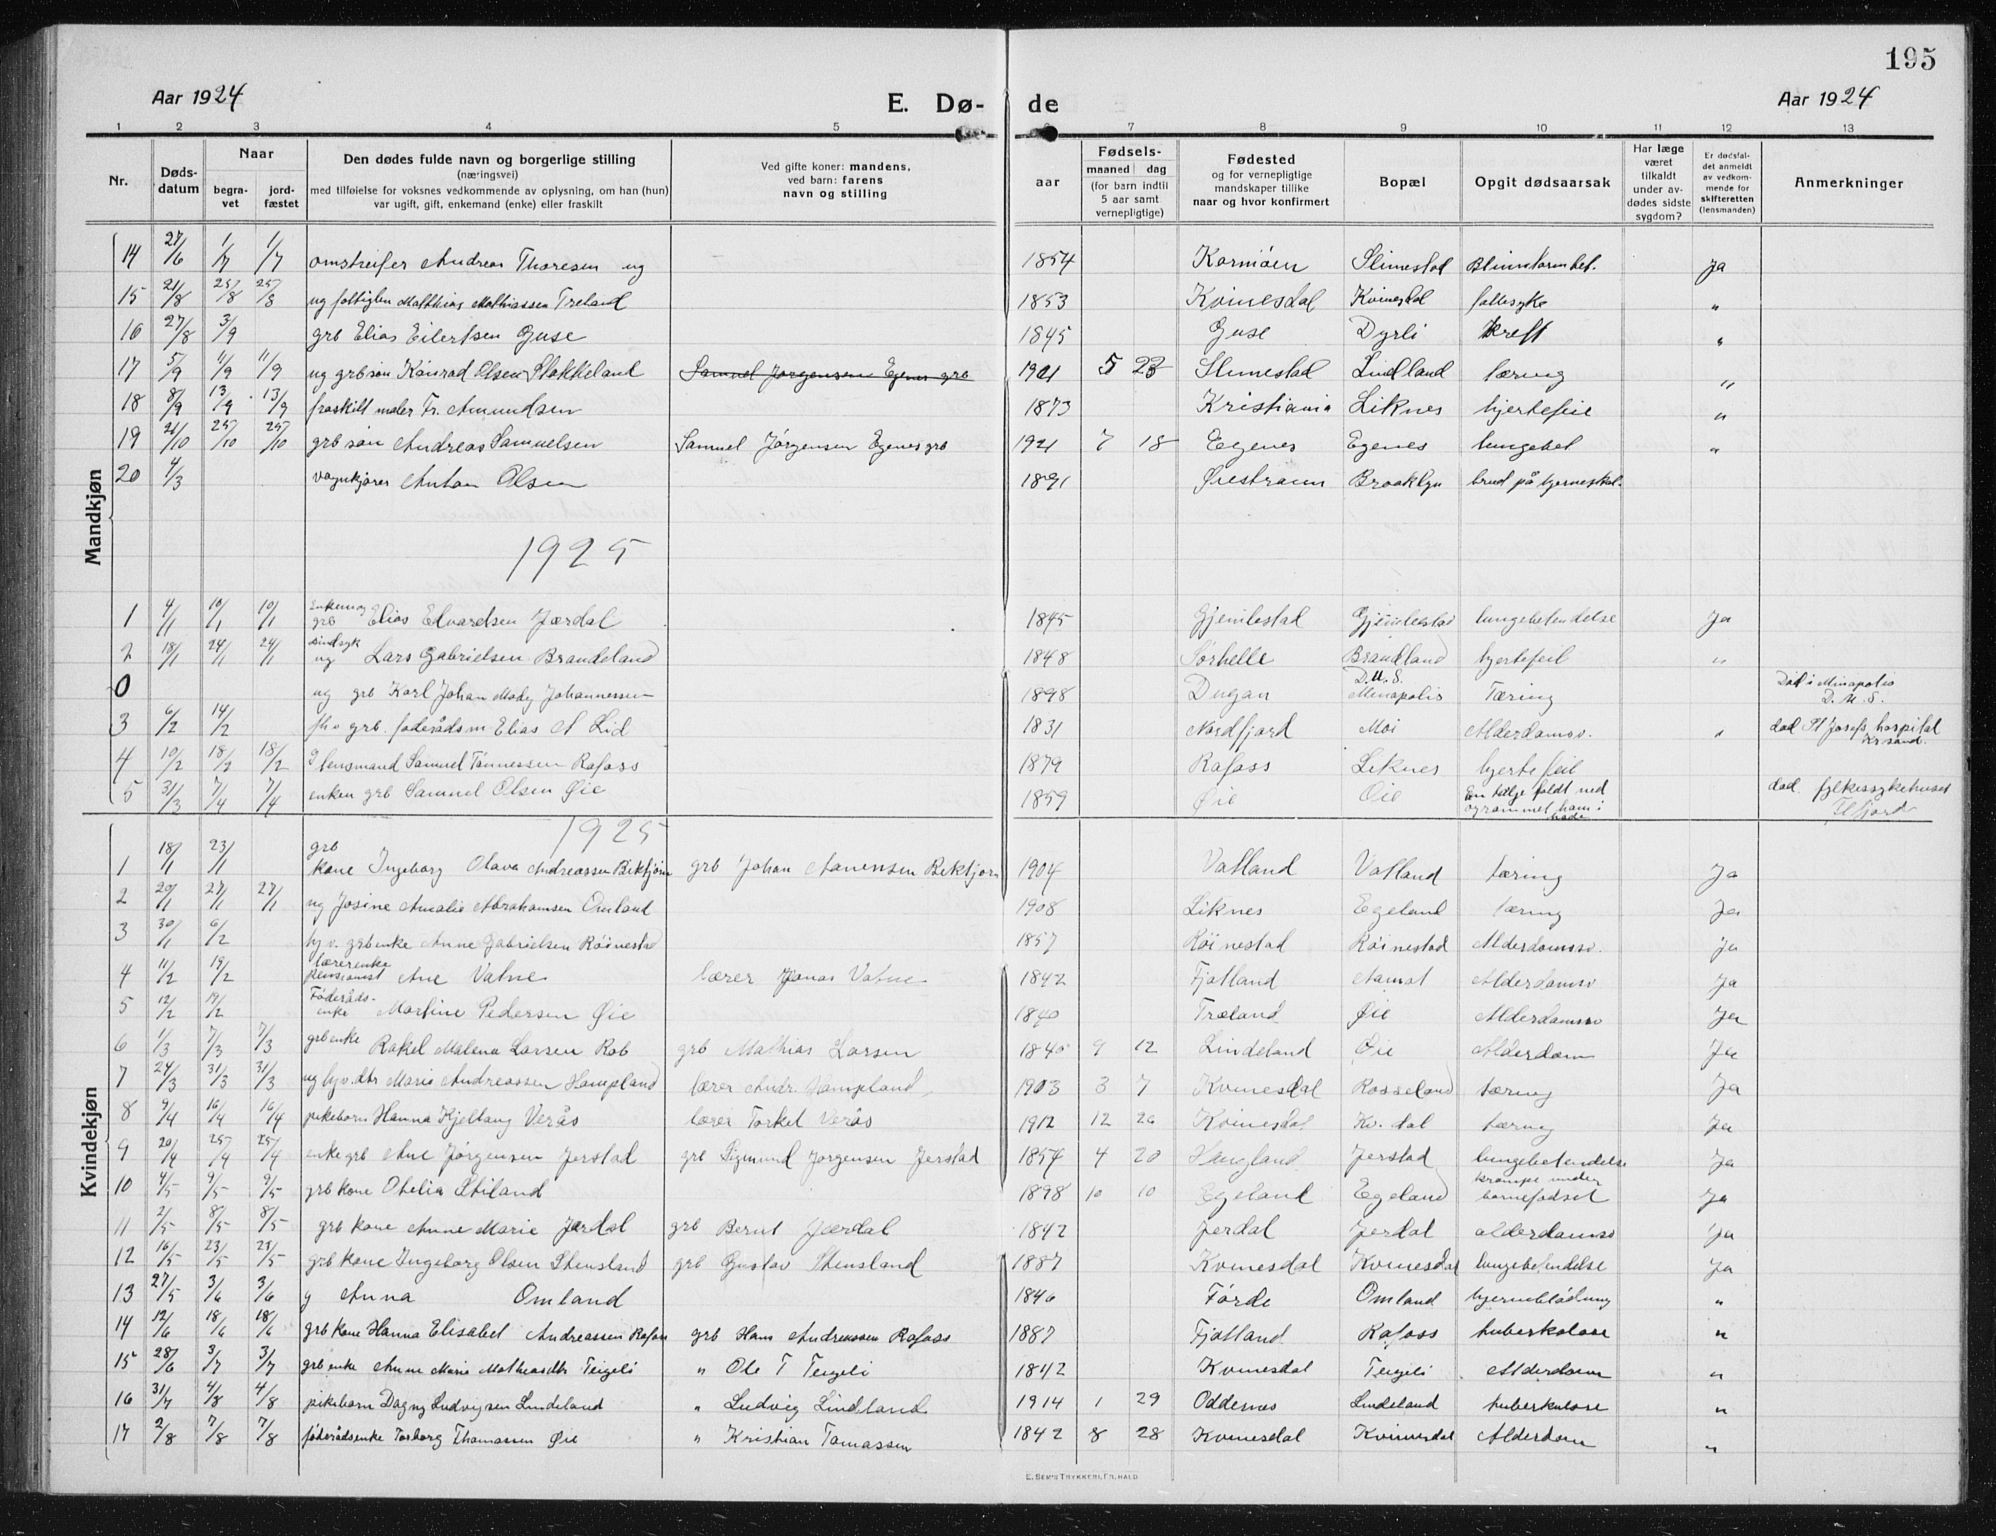 195
Aar 1924 E. Dø- de Aar 1924
1 2 3 4 5 6 7 8 9 10 11 12 13
Nr. Dødsdatum Naar begravet jordfæstet
Den dødes fulde navn og borgerlige stilling (næringsvei) med tilføielse for voksnes vedkommende av oplysning, om han (hun) var ugift, gift, enkemand (enke) eller fraskilt
Ved gifte koner: mandens, ved barn: farens navn og stilling
aar Fødsels- maaned dag (for barn indtil 5 aar samt vernepligtige)
Fødested og for vernepligtige mandskaper tillike naar og hvor konfirmert
Bopæl Opgit dødsaarsak
Har læge været tilkaldt under avdødes sidste sygdom?
Er dødsfaldet anmeldt av vedkommende for skifteretten (lensmanden)
Anmerkninger
Mandkjøn
14 27/6 1/7 1/7 omstreifer Andreas Thoresen ug 1854 Karmöen Slimestad Ja
15 21/8 25/8 25/8 ug fattiglem Matthias Mathiassen Treland 1853 Kvinesdal Kvinesdal fallesyke "
16 27/8 3/9 grb Elias Eilertsen Guse 1845 Guse Dyrli Kreft "
17 5/9 11/9 11/9 ug grb søn Konrad Olsen Stakkeland Samuel Jørgensen Egenes grb 1901 5 23 Slimestad Lindland tæring "
18 8/9 13/9 13/9 fraskilt maler Fr. Amundsen 1873 Kristiania Liknes hjertefeil "
19 21/10 25/10 25/10 grb søn Andreas Samuelsen Samuel Jørgensen Egenes grb 1921 7 18 Egenes Egenes lungebet "
20 4/3 vognkjører Anton Olsen 1891 Øiestrann Brooklyn brud på hjerneskal.
1925
1 4/1 10/1 10/1 enkem og grb Elias Edvardsen Jærdal 1845 Gjemlestad Gjemlestad lungebetendelse Ja
2 18/1 24/1 24/1 sindsyk ug Lars Gabrielsen Brandeland 1848 Sørhelle Brandland hjertefeil "
0 ug grb Karl Johan Mody Johannessen 1898 Dugan Minapolis D.U.S. Tæring Død i Minapolis D.U.S.
3 6/2 14/2 fhv grb. föderådsm Elias A Lid 1831 Nordfjord Moi Alderdomsv. " död St Josefs hospital Krsand.
4 10/2 18/2 18/2 g lensmand Samuel Tønnessen Rafoss 1879 Rafoss Liknes hjertefeil
5 31/3 7/4 7/4 enkem grb Samuel Olsen Øie 1859 Øie Oie En tælje faldt ned og rammet ham i hode död fylkessykehuset Fl fjord
Kvindekjøn
1925
1 18/1 23/1 grb kone Ingeborg Olava Andreassen Birkfjorn grb Johan Aanensen Birkfjorn 1904 Vatland Vatland tæring Ja
2 20/1 27/1 27/1 ug Josine Amalie Abrahamsen Omland 1908 Liknes Egeland tæring Ja
3 30/1 6/2 hj v. grb enke Anne Gabrielsen Röinestad 1857 Röinestad Röinestad Alderdomssv. Ja
4 11/2 19/2 lærerenke pensionist Ane Vatne lærer Jonas Vatne 1842 Fjotland Aamot Alderdomsv Ja
5 12/2 19/2 Föderåds- enke Martine Pedersen Øie 1840 Træland Øie Alderdomssv Ja
6 1/3 7/3 7/3 grb enke Rakel Malena Larsen Rob grb Mathias Larsen 1840 9 12 Lindeland Øie Alderdom Ja
7 24/3 31/3 31/3 ug hj v. dtr Marie Andreassen Hampland lærer Andr. Hampland 1903 3 7 Kvinesdal Rosseland tæring Ja
8 9/4 16/4 16/4 pikebarn Hanna Kjellaug Verås lærer Torkel Verås 1912 12 26 Kvinesdal Kv. dal tæring Ja
9 20/4 25/4 25/4 enke grb Ane Jørgensen Jerstad grb Sigmund Jørgensen Jerstad 1854 4 20 Haugland Jerstad lungebetendelse Ja
10 4/5 9/5 9/5 grb kone Otelia Stiland 1898 10 10 Egeland Egeland krampe under barnefødsel Ja
11 2/5 8/5 8/5 grb kone Anne Marie Jærdal grb Bernt Jærdal 1842 Jerdal Jerdal alderdomssv Ja
12 16/5 23/5 23/5 grb kone Ingeborg Olsen Stensland grb Gustav Stensland 1887 Kvinesdal Kvinesdal lungebetendelse Ja
13 27/5 3/6 3/6 g Anna Omland 1846 Førde Omland hjerneblödning "
14 12/6 18/6 18/6 grb kone Hanna Elisabet Andreassen Rafoss grb Hans Andreassen Rafoss 1887 Fjotland Rafoss tuberkulose "
15 28/6 3/7 3/7 grb enke Anne Marie Mathiasdtr Teigeli " Ole T Teigeli 1842 Kvinesdal Teigeli Alderdom "
16 31/7 4/8 4/8 pikebarn Dagny Ludvigsen Lindeland " Ludvig Lindland 1914 1 29 Oddenes Lindeland tuberkulose "
17 2/8 7/8 7/8 föderådsenke Torborg Thomassen Øie " Kristian Tomassen 1842 8 28 Kvinesdal Kvinesdal Alderdom "
E. SEM'S TRYKKERI, FR.HALD